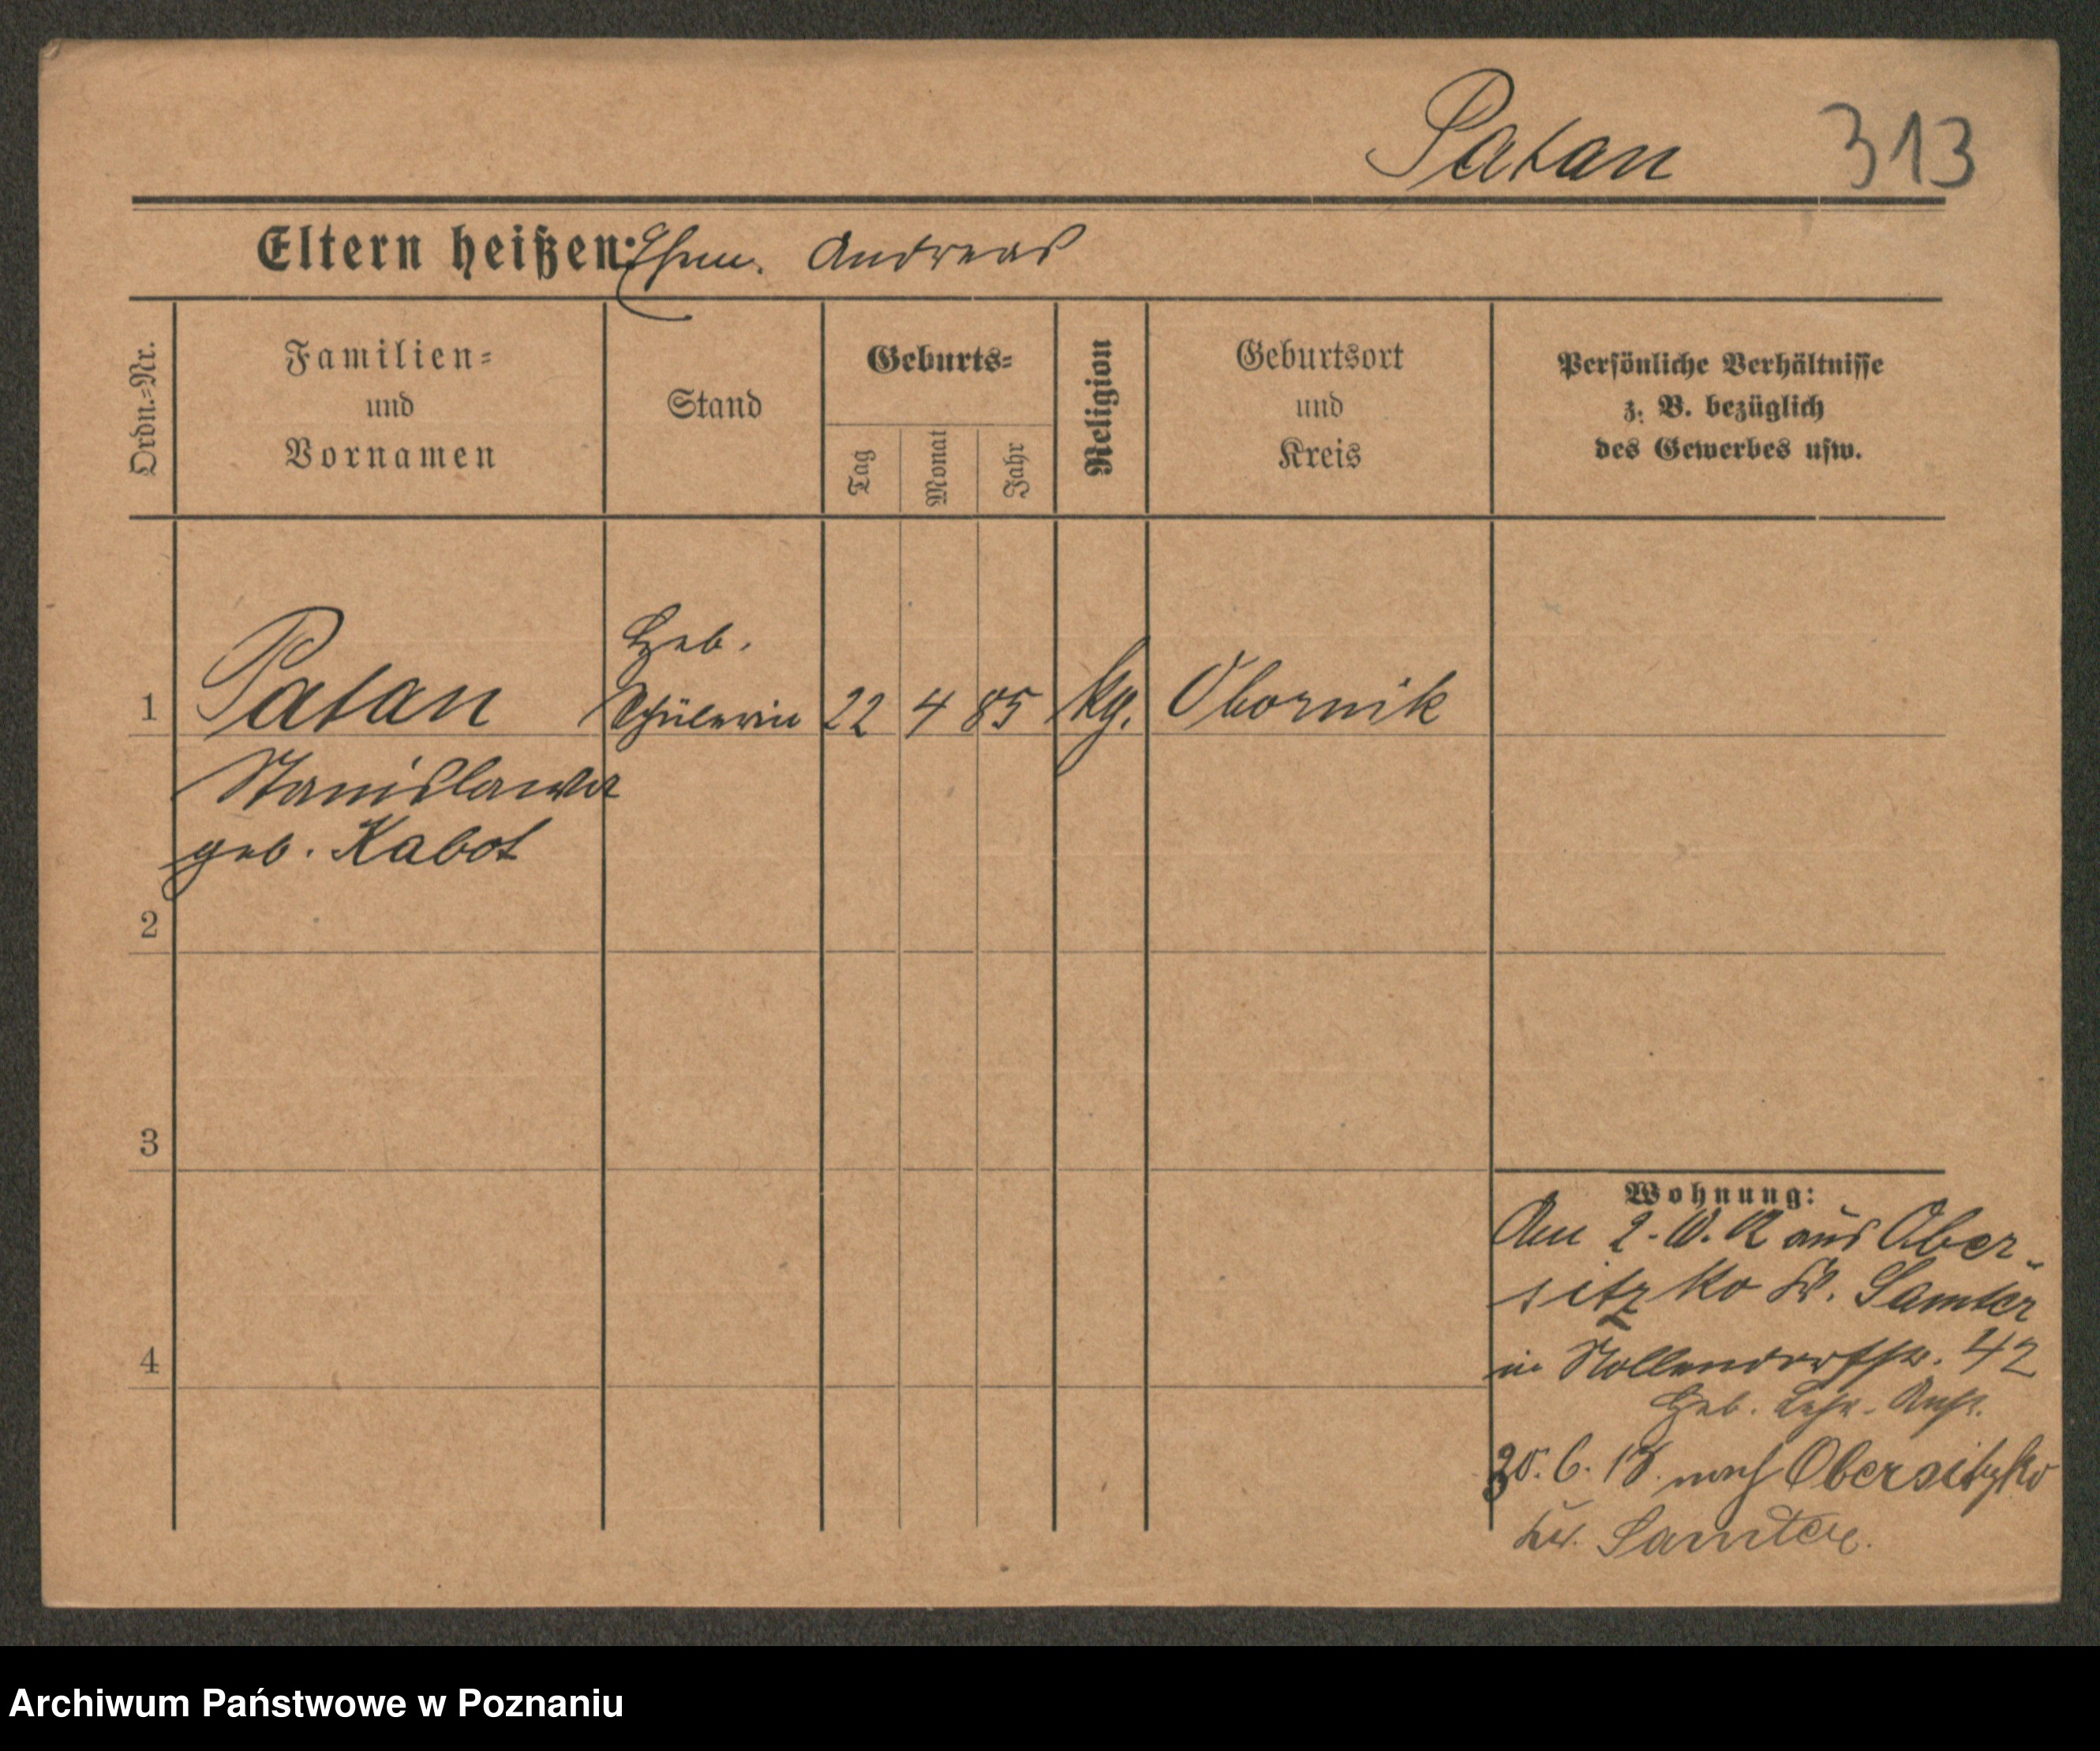 Patan 313
Eltern heißen: Ehem. Andreas
Ordn.-Nr.
Familien-
und
Vornamen
Stand
Geburts-
Tag
Monat
Jahr
Religion
Geburtsort
und
Kreis
Persönliche Verhältnisse
z. B. bezüglich
des Gewerbes usw.
Heb.
1 Patan Schülerin 22 4 85 kg. Obornik
Stanislawa
geb. Kabot
2
3
4
Wohnung:
Am 2. aus Ober-
sitzko Kr. Samter
in Nollendorfstr. 42
Heb. Lehr-Anst.
30. 6. 13. nach Obersitzko
Kr. Samter.
Archiwum Państwowe w Poznaniu